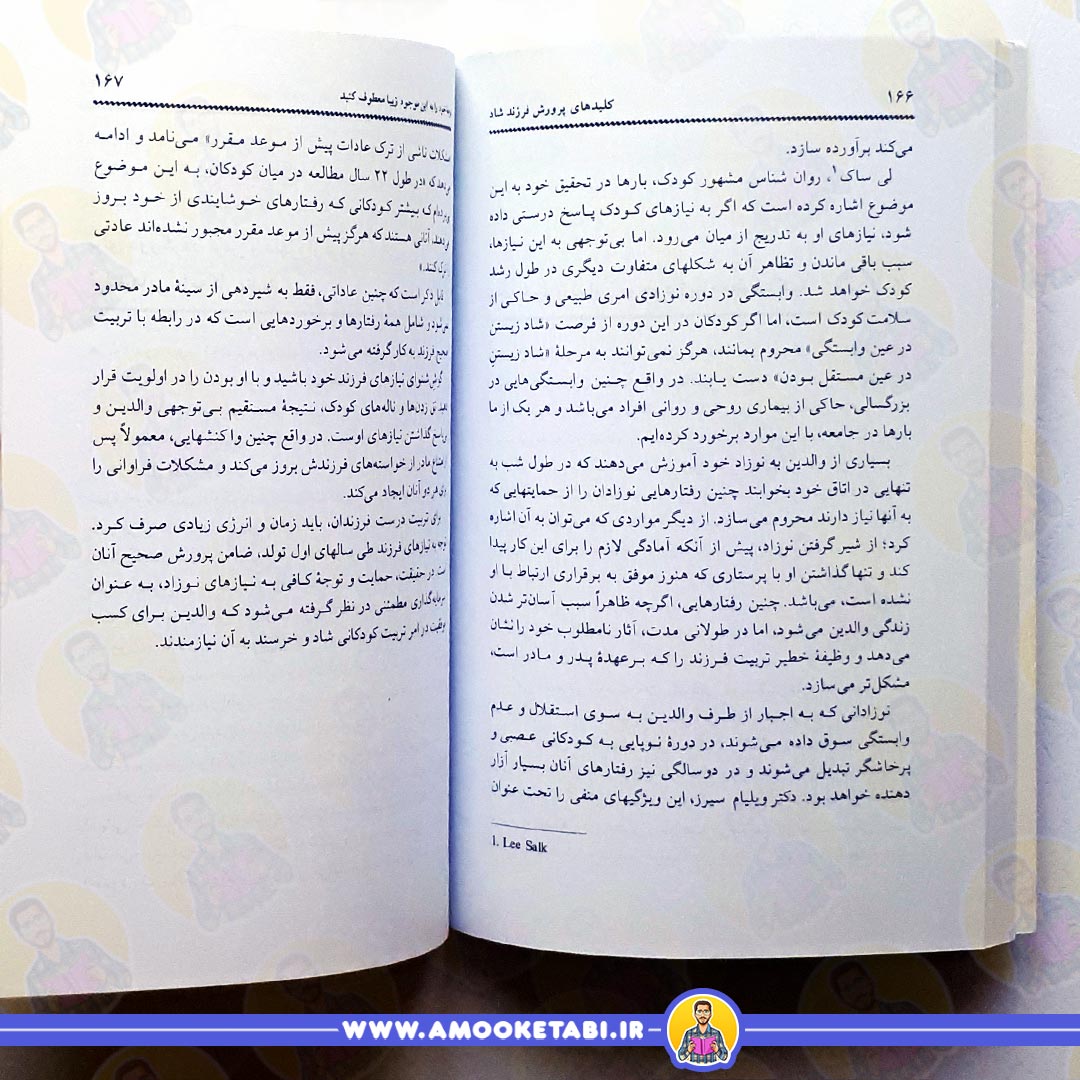 ۱۶۶
کلیدهای پرورش فرزند شاد
می‌کند برآورده سازد.
لی ساک۱، روان شناس مشهور کودک، بارها در تحقیق خود به این
موضوع اشاره کرده است که اگر به نیازهای کودک پاسخ درستی داده
شود، نیازهای او به تدریج از میان می‌رود. اما بی‌توجهی به این نیازها،
سبب باقی ماندن و تظاهر آن به شکلهای متفاوت دیگری در طول رشد
کودک خواهد شد. وابستگی در دوره نوزادی امری طبیعی و حاکی از
سلامت کودک است، اما اگر کودکان در این دوره از فرصت «شاد زیستن
در عین وابستگی» محروم بمانند، هرگز نمی‌توانند به مرحلهٔ «شاد زیستنِ
در عین مستقل بودن» دست یابند. در واقع چنین وابستگی‌هایی در
بزرگسالی، حاکی از بیماری روحی و روانی افراد می‌باشد و هر یک از ما
بارها در جامعه، با این موارد برخورد کرده‌ایم.
بسیاری از والدین به نوزاد خود آموزش می‌دهند که در طول شب به
تنهایی در اتاق خود بخوابند چنین رفتارهایی نوزادان را از حمایتهایی که
به آنها نیاز دارند محروم می‌سازد. از دیگر مواردی که می‌توان به آن اشاره
کرد؛ از شیر گرفتن نوزاد، پیش از آنکه آمادگی لازم را برای این کار پیدا
کند و تنها گذاشتن او با پرستاری که هنوز موفق به برقراری ارتباط با او
نشده است، می‌باشد. چنین رفتارهایی، اگرچه ظاهراً سبب آسان‌تر شدن
زندگی والدین می‌شود، اما در طولانی مدت، آثار نامطلوب خود را نشان
می‌دهد و وظیفهٔ خطیر تربیت فرزند را که برعهدهٔ پدر و مادر است،
مشکل‌تر می‌سازد.
نوزادانی که به اجبار از طرف والدین به سوی استقلال و عدم
وابستگی سوق داده می‌شوند، در دورهٔ نوپایی به کودکانی عصبی و
پرخاشگر تبدیل می‌شوند و در دوسالگی نیز رفتارهای آنان بسیار آزار
دهنده خواهد بود. دکتر ویلیام سیرز، این ویژگیهای منفی را تحت عنوان
1. Lee Salk
به این موجود زیبا معطوف کنید
۱۶۷
ناشی از ترک عادات پیش از موعد مقرر» می‌نامد و ادامه
که «در طول ۲۲ سال مطالعه در میان کودکان، به این موضوع
که بیشتر کودکانی که رفتارهای خوشایندی از خود بروز
آنانی هستند که هرگز پیش از موعد مقرر مجبور نشده‌اند عادتی
کنند.»
ذکر است که چنین عاداتی، فقط به شیردهی از سینهٔ مادر محدود
شامل همهٔ رفتارها و برخوردهایی است که در رابطه با تربیت
صحیح فرزند به کار گرفته می‌شود.
شنوای نیازهای فرزند خود باشید و با او بودن را در اولویت قرار
زدن‌ها و ناله‌های کودک، نتیجهٔ مستقیم بی‌توجهی والدین و
گذاشتن نیازهای اوست. در واقع چنین واکنشهایی، معمولاً پس
مادر از خواسته‌های فرزندش بروز می‌کند و مشکلات فراوانی را
هر دو آنان ایجاد می‌کند.
برای تربیت درست فرزندان، باید زمان و انرژی زیادی صرف کرد.
توجه به نیازهای فرزند طی سالهای اول تولد، ضامن پرورش صحیح آنان
است. در حقیقت، حمایت و توجهٔ کافی به نیازهای نوزاد، به عنوان
سرمایه‌گذاری مطمئنی در نظر گرفته می‌شود که والدین برای کسب
موفقیت در امر تربیت کودکانی شاد و خرسند به آن نیازمندند.
WWW.AMOOKETABI.IR